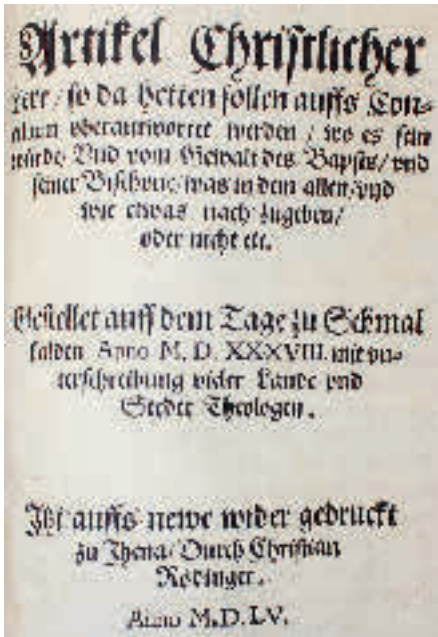 Artikel Christlicher
Lere / so da hetten sollen auffs Con-
cilium vberantwortet werden / wo es sein
würde / Vnd vom Gewalt des Bapsts / vnd
seiner Bischoue / was in dem allen / vnd
wie etwas nach zugeben /
oder nicht etc.
Gestellet auff dem Tage zu Schmal
kalden Anno M. D. XXXVIII. mit vn-
terschreibung vieler Lande vnd
Stedte Theologen.
Jtzt auffs newe wider gedruckt
zu Jhena / Durch Christian
Rödinger.
Anno M.D.LV.